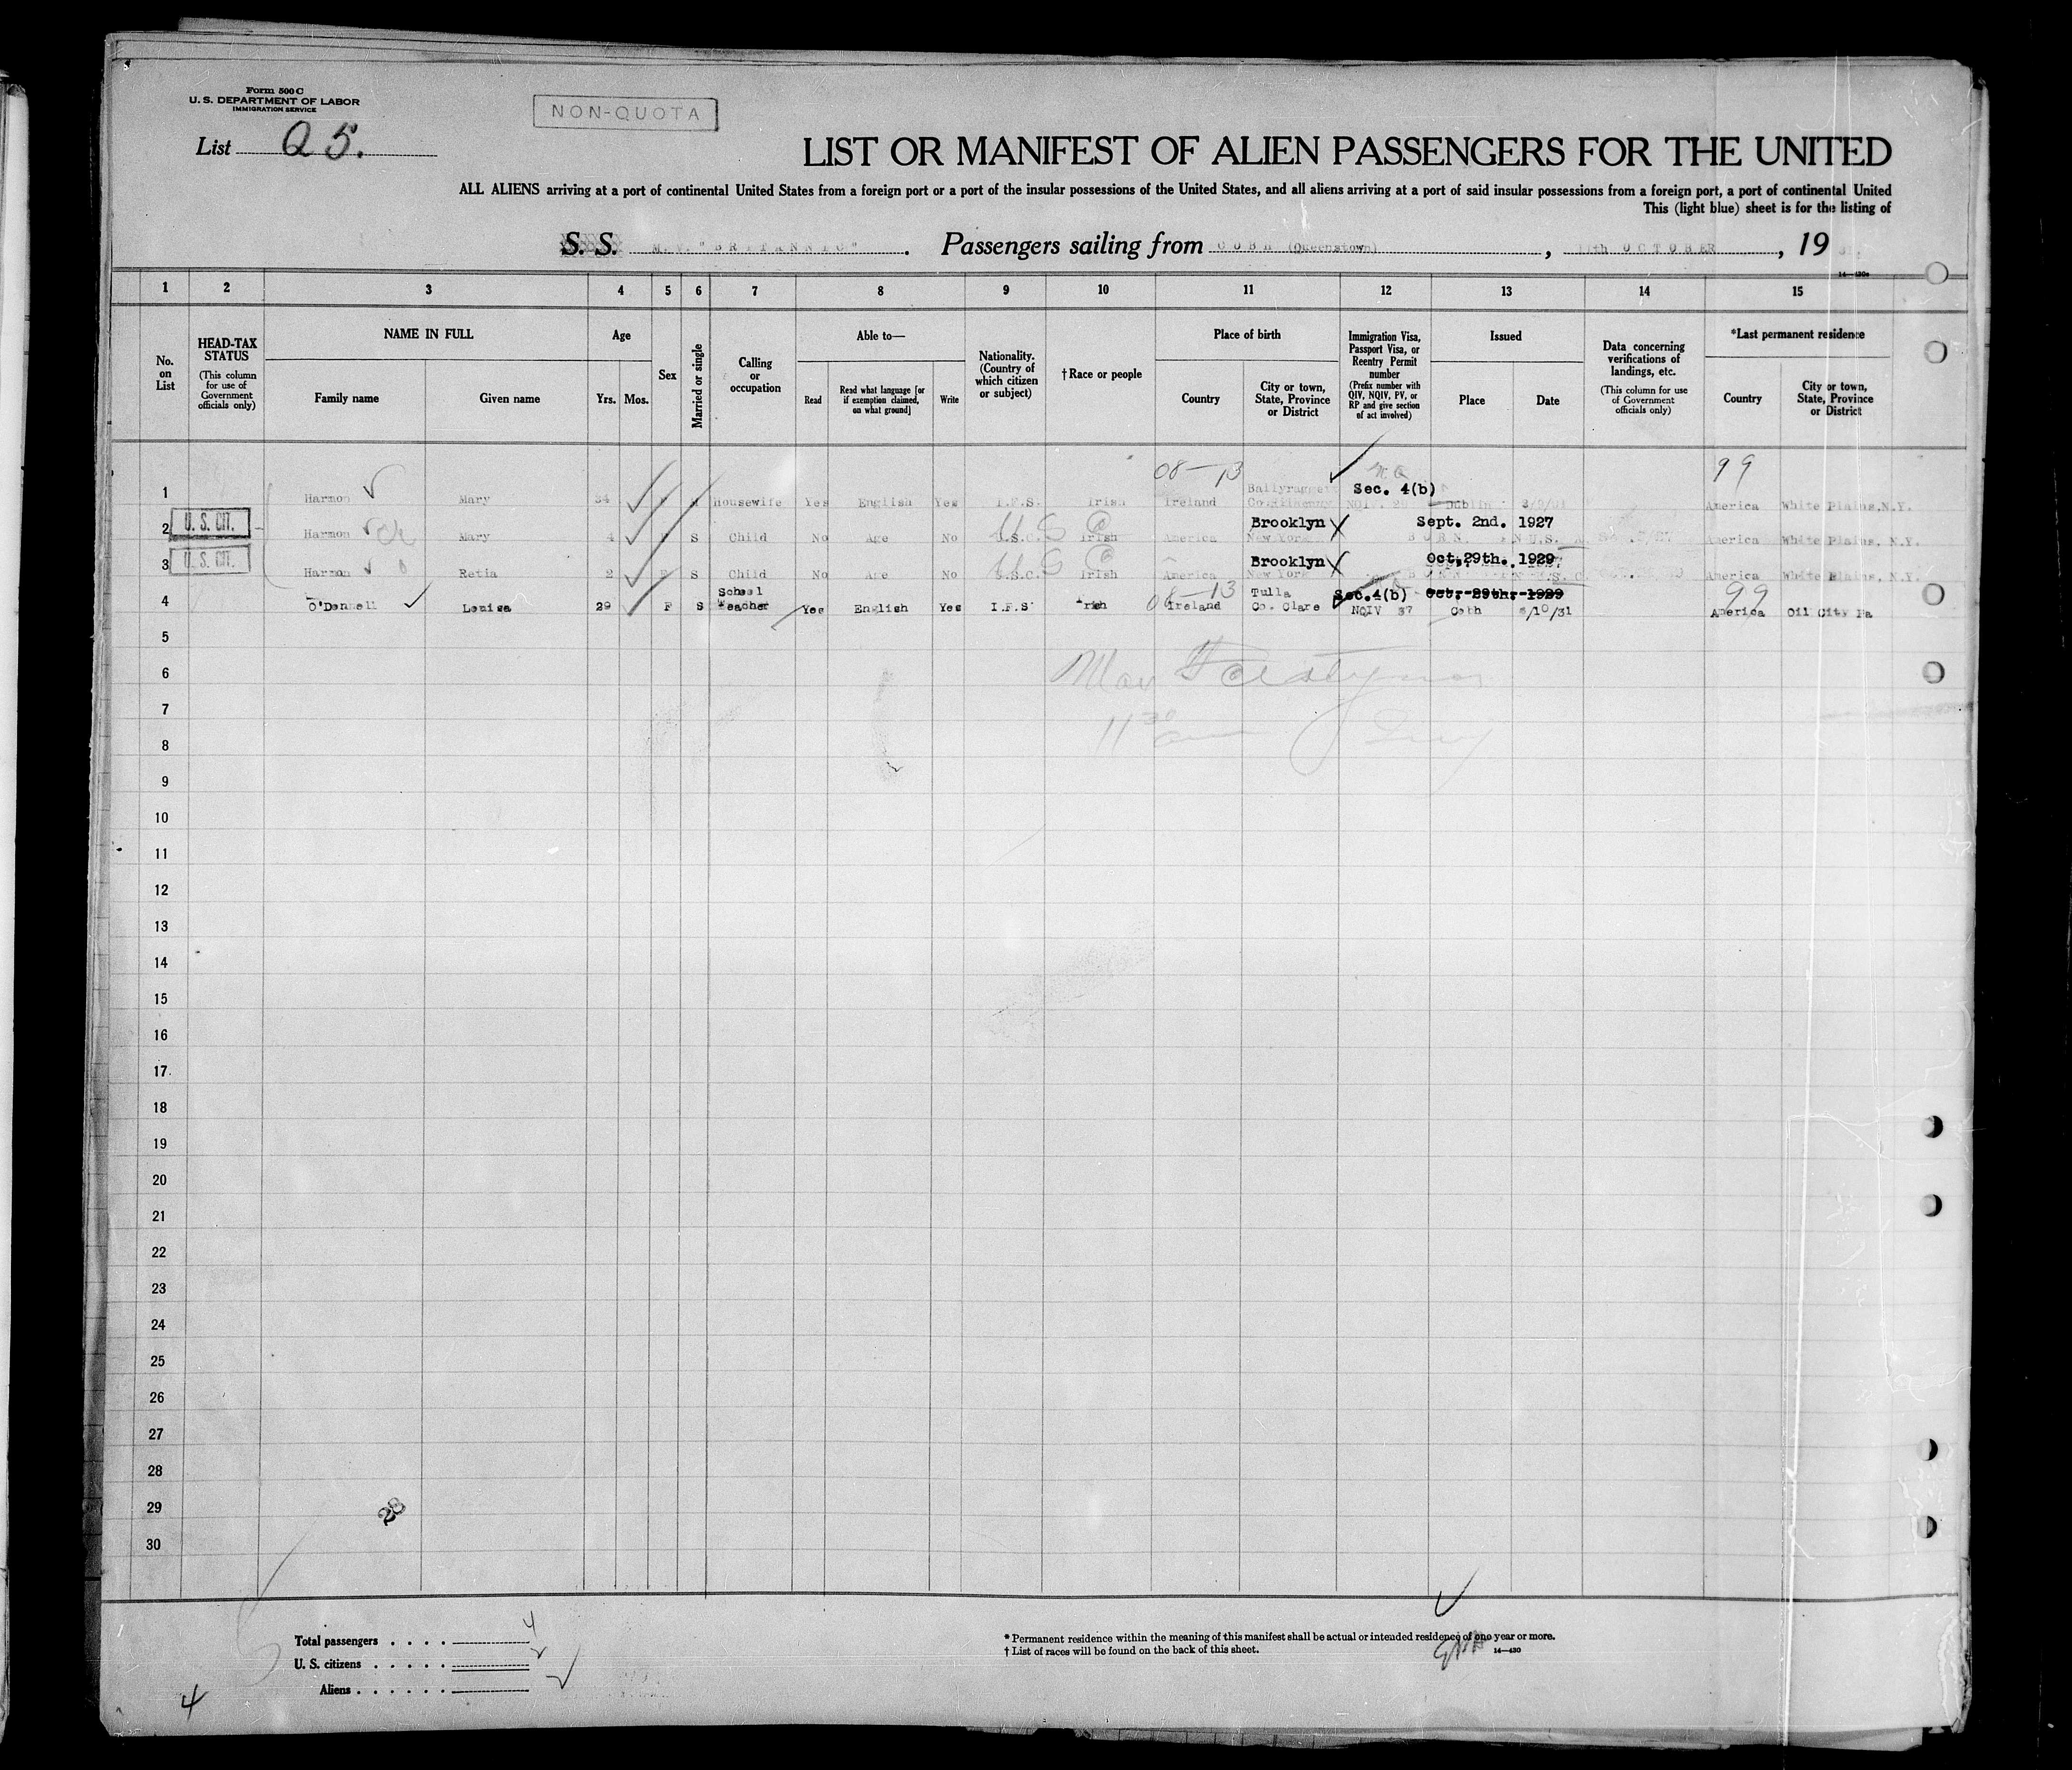 Form 500 C
U. S. DEPARTMENT OF LABOR
IMMIGRATION SERVICE
NON-QUOTA
List Q 5.
LIST OR MANIFEST OF ALIEN PASSENGERS FOR THE UNITED
ALL ALIENS arriving at a port of continental United States from a foreign port or a port of the insular possessions of the United States, and all aliens arriving at a port of said insular possessions from a foreign port, a port of continental United
This (light blue) sheet is for the listing of
S. S. M.V. "BRITANNIC". Passengers sailing from COBH (Queenstown), 11th OCTOBER, 19
1 2 3 4 5 6 7 8 9 10 11 12 13 14 15
No. on List
HEAD-TAX STATUS (This column for use of Government officials only)
NAME IN FULL
Family name Given name
Age
Yrs. Mos.
Sex
Married or single
Calling or occupation
Able to—
Read
Read what language [or if exemption claimed, on what ground]
Write
Nationality. (Country of which citizen or subject)
† Race or people
Place of birth
Country
City or town, State, Province or District
Immigration Visa, Passport Visa, or Reentry Permit number (Prefix number with QIV, NQIV, PV, or RP and give section of act involved)
Issued
Place Date
Data concerning verifications of landings, etc. (This column for use of Government officials only)
*Last permanent residence
Country
City or town, State, Province or District
08-13 99
1 Harmon Mary 34 Housewife Yes English Yes I.F.S. Irish Ireland Sec. 4(b) Dublin America White Plains, N.Y.
U. S. CIT.
2 Harmon Mary 4 S Child No Age No U.S.C. Irish America Brooklyn New York Sept. 2nd. 1927 BORN IN U.S.A. America White Plains, N.Y.
U. S. CIT.
3 Harmon Retia 2 S Child No Age No U.S.C. Irish America Brooklyn New York Oct. 29th. 1929 America White Plains, N.Y.
08-13 99
4 O'Donnell Louisa 29 F S School Teacher Yes English Yes I.F.S Irish Ireland Tulla Co. Clare Sec. 4(b) NQIV 37 Oct. 29th. 1929 Cobh America Oil City Pa
5
6
7
11 30
8
9
10
11
12
13
14
15
16
17
18
19
20
21
22
23
24
25
26
27
28
29
30
28
Total passengers . . . . 4
U. S. citizens . . . . . 2
Aliens . . . . . .
4
* Permanent residence within the meaning of this manifest shall be actual or intended residence of one year or more.
† List of races will be found on the back of this sheet.
14—430